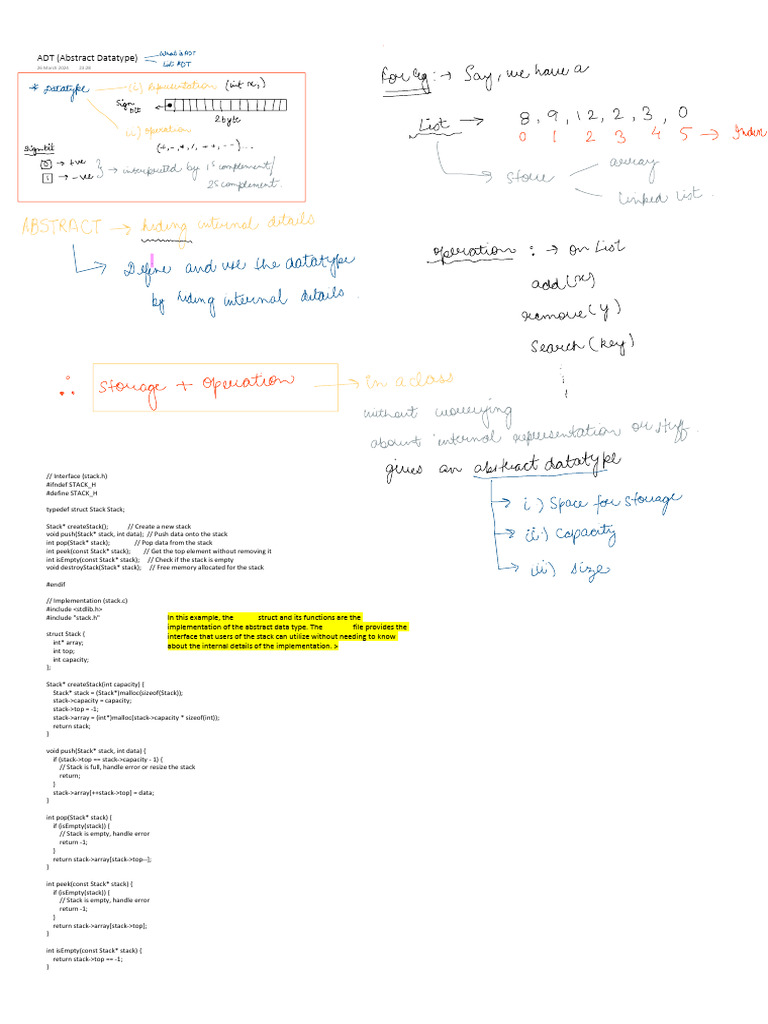 ADT (Abstract Datatype)
What is ADT
List ADT
* Datatype
(i) Representation (int x;)
Sign bit
2 byte
ii) operation
(+, -, *, /, ++, --)...
Sign bit
0 → +ve
1 → -ve
→ interpreted by 1s complement/
2s complement.
ABSTRACT → hiding internal details
Define and use the datatype
by hiding internal details.
∴ Storage + Operation → In a class
For eg: → Say, we have a
List → 8, 9, 12, 2, 3, 0
0 1 2 3 4 5 → Index
→ store
array
linked list.
operation : → on List
add(x)
remove(y)
Search(key)
without worrying
abount internal representation or stuff.
gives an abstract datatype
i) Space for storage
ii) Capacity
iii) size
// Interface (stack.h)
#ifndef STACK_H
#define STACK_H
typedef struct Stack Stack;
Stack* createStack(); // Create a new stack
void push(Stack* stack, int data); // Push data onto the stack
int pop(Stack* stack); // Pop data from the stack
int peek(const Stack* stack); // Get the top element without removing it
int isEmpty(const Stack* stack); // Check if the stack is empty
void destroyStack(Stack* stack); // Free memory allocated for the stack
#endif
// Implementation (stack.c)
#include <stdlib.h>
#include "stack.h"
In this example, the struct and its functions are the
implementation of the abstract data type. The file provides the
interface that users of the stack can utilize without needing to know
about the internal details of the implementation. >
struct Stack {
int* array;
int top;
int capacity;
};
Stack* createStack(int capacity) {
Stack* stack = (Stack*)malloc(sizeof(Stack));
stack->capacity = capacity;
stack->top = -1;
stack->array = (int*)malloc(stack->capacity * sizeof(int));
return stack;
}
void push(Stack* stack, int data) {
if (stack->top == stack->capacity - 1) {
// Stack is full, handle error or resize the stack
return;
}
stack->array[++stack->top] = data;
}
int pop(Stack* stack) {
if (isEmpty(stack)) {
// Stack is empty, handle error
return -1;
}
return stack->array[stack->top--];
}
int peek(const Stack* stack) {
if (isEmpty(stack)) {
// Stack is empty, handle error
return -1;
}
return stack->array[stack->top];
}
int isEmpty(const Stack* stack) {
return stack->top == -1;
}